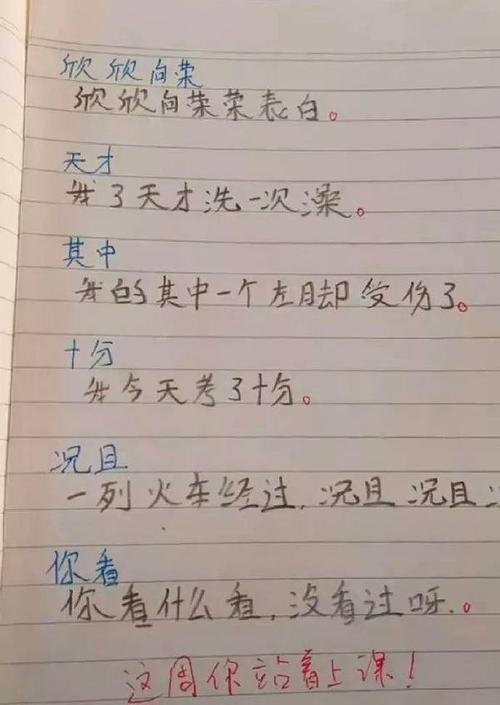 欣欣向荣
欣欣向荣荣表白。
天才
我3天才洗一次澡。
其中
我的其中一个左脚却受伤了。
十分
我今天考了十分。
况且
一列火车经过,况且况且
你看
你看什么看,没看过呀.。
这周你站着上课!